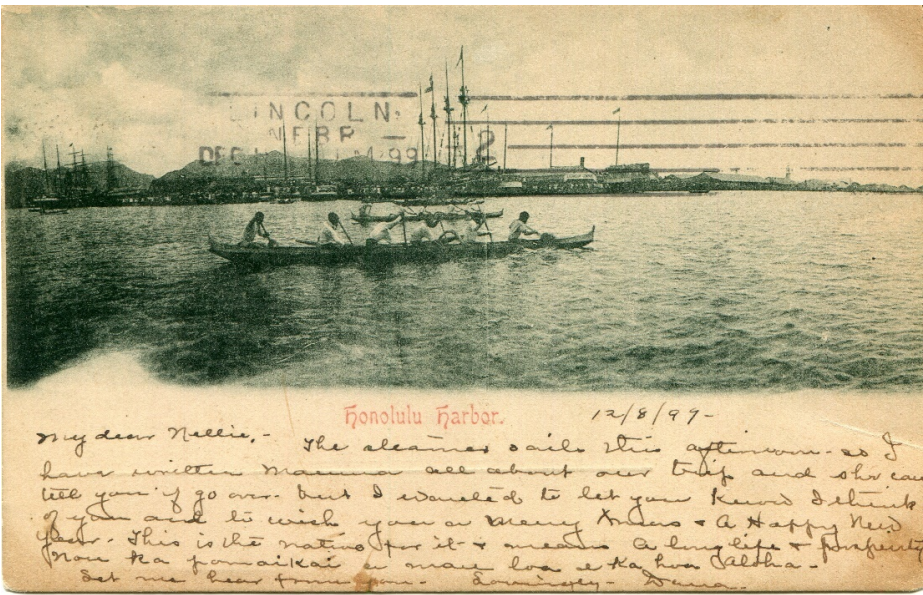 LINCOLN.
NEBR
DEC 99 2
Honolulu Harbor. 12/8/99-
My dear Nellie,- The steamer sails this afternoon- so I
have written Mamma all about our trip and she can
tell you if go over. but I wanted to let you know I think
of you and to wish you a Merry Xmas + A Happy New
Year. This is the native for it + means a long life + prosperity
ka pomaikai a mau loa e ka hoa Aloha-
Let me hear from you. Lovingly-